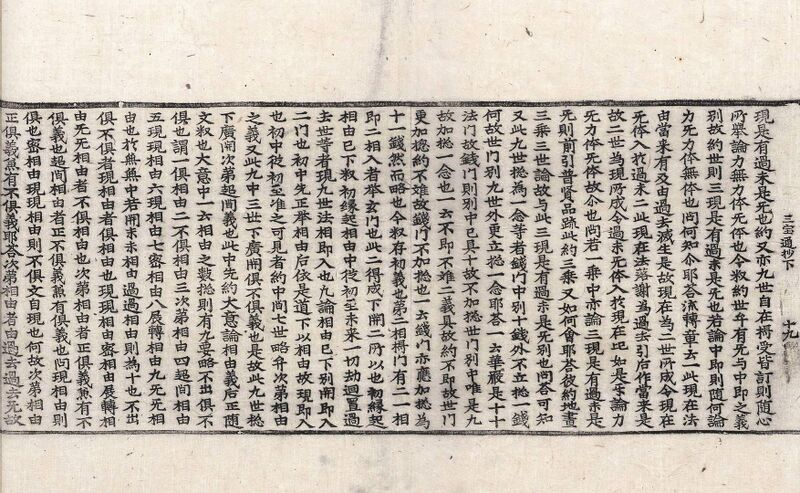 三宝通抄下 十九
現是有過未是死也約又亦九世自在搏受皆訂則随心
所擧論力無力俸死俸也令叙約世年有死与中即之義
別故約世則三現是有過未是死也若論中即則随何論
力死力俸無俸也問何知尒耶荅流轉章云一此現在法
由當来有又由過去滅生是故現在為二世所成令現在
死俸入於過未二此現在法落謝為過去引后作當来是
故二世為現所成令過未死俸入於現在也如是字論力
死力俸死俸故尒也問若一乗中亦論三現是有過未是
死則前引普賢品䟽此約三乗又如何會耶荅彼約地盡
三乗三世論故与此三現是有過未是死别也問荅可知
又此九世揔為一念等者錢門中别十錢外不立揔一錢
何故世門别九世外更立揔一念耶荅一云華嚴是十十
法門故錢門則别中已具十故不加揔也世門别中唯是九
故加揔一念也一云不即不难二義具故約不即故世門
更加揔約不难故錢門不加揔也一云錢門亦應加揔為
十一錢然而略也令叙存初義也第二相搏門有二一相
即二相入者举玄門也此二得成下開二所以也初縁起
相由已下叙初縁起相由中從初至未来一切劫迴置過
去世等者現九世法相即入也九論相由已下别開即入
二門也初中先正举相由后依是道下以相由故現即入
也初中從初至准之可見者約中間七世略弁次第相由
之義又此九中三世下廣開俱不俱義也是故此九世揔
下廣開次第起間義也此中先約大意論相由義后正随
文叙也大意中一云相由之数揔則有九妥略不出俱不
俱也謂一俱相由二不俱相由三次第相由四起間相由
五現現相由六現相由七密相由八展轉相由九死死相
由也於無無中若開未未相由過過相由則為十也不出
俱不俱者現相由者俱相由也現現相由密相由展轉相
由死死相由者不俱相由也次第相由者正俱義蕉有不
俱義也起間相由者正不俱義蕉有俱義也問現相由則
俱也密相由現現相由則不俱文自現也何故次第相由
正俱義蕉有不俱義耶荅次第相由者由過去過去死故